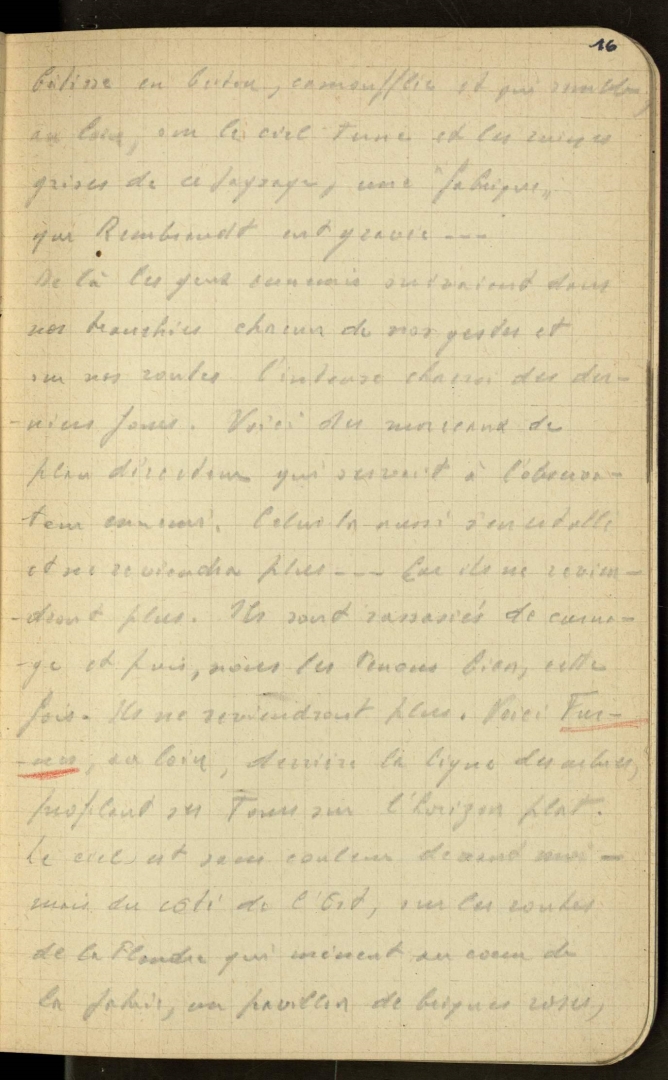 16
bâtisse en béton, camouflée et qui semblait,
au loin, sur le ciel terne et les ruines
grises de ce paysage, une "fabrique„
que Rembrandt eut gravée ---
De là les yeux ennemis suivaient dans
nos tranchées chacun de nos gestes et
sur nos routes l'intense charroi des der-
-niers jours. Voici des morceaux de
plan directeur qui servait à l'observa-
teur ennemi. Celui là aussi s'en est allé
et ne reviendra plus --- Car ils ne revien-
-dront plus. Ils sont rassasiés de carna-
-ge et puis, nous les tenons bien, cette
fois. Ils ne reviendront plus. Voici Fur-
-nes, au loin, derrière la ligne des arbres,
profilant ses Tours sur l'horizon plat.
Le ciel est sans couleur devant moi -
mais du côté de l'Est, sur les routes
de la Flandre qui mènent au coeur de
la patrie, un pavillon de briques roses,